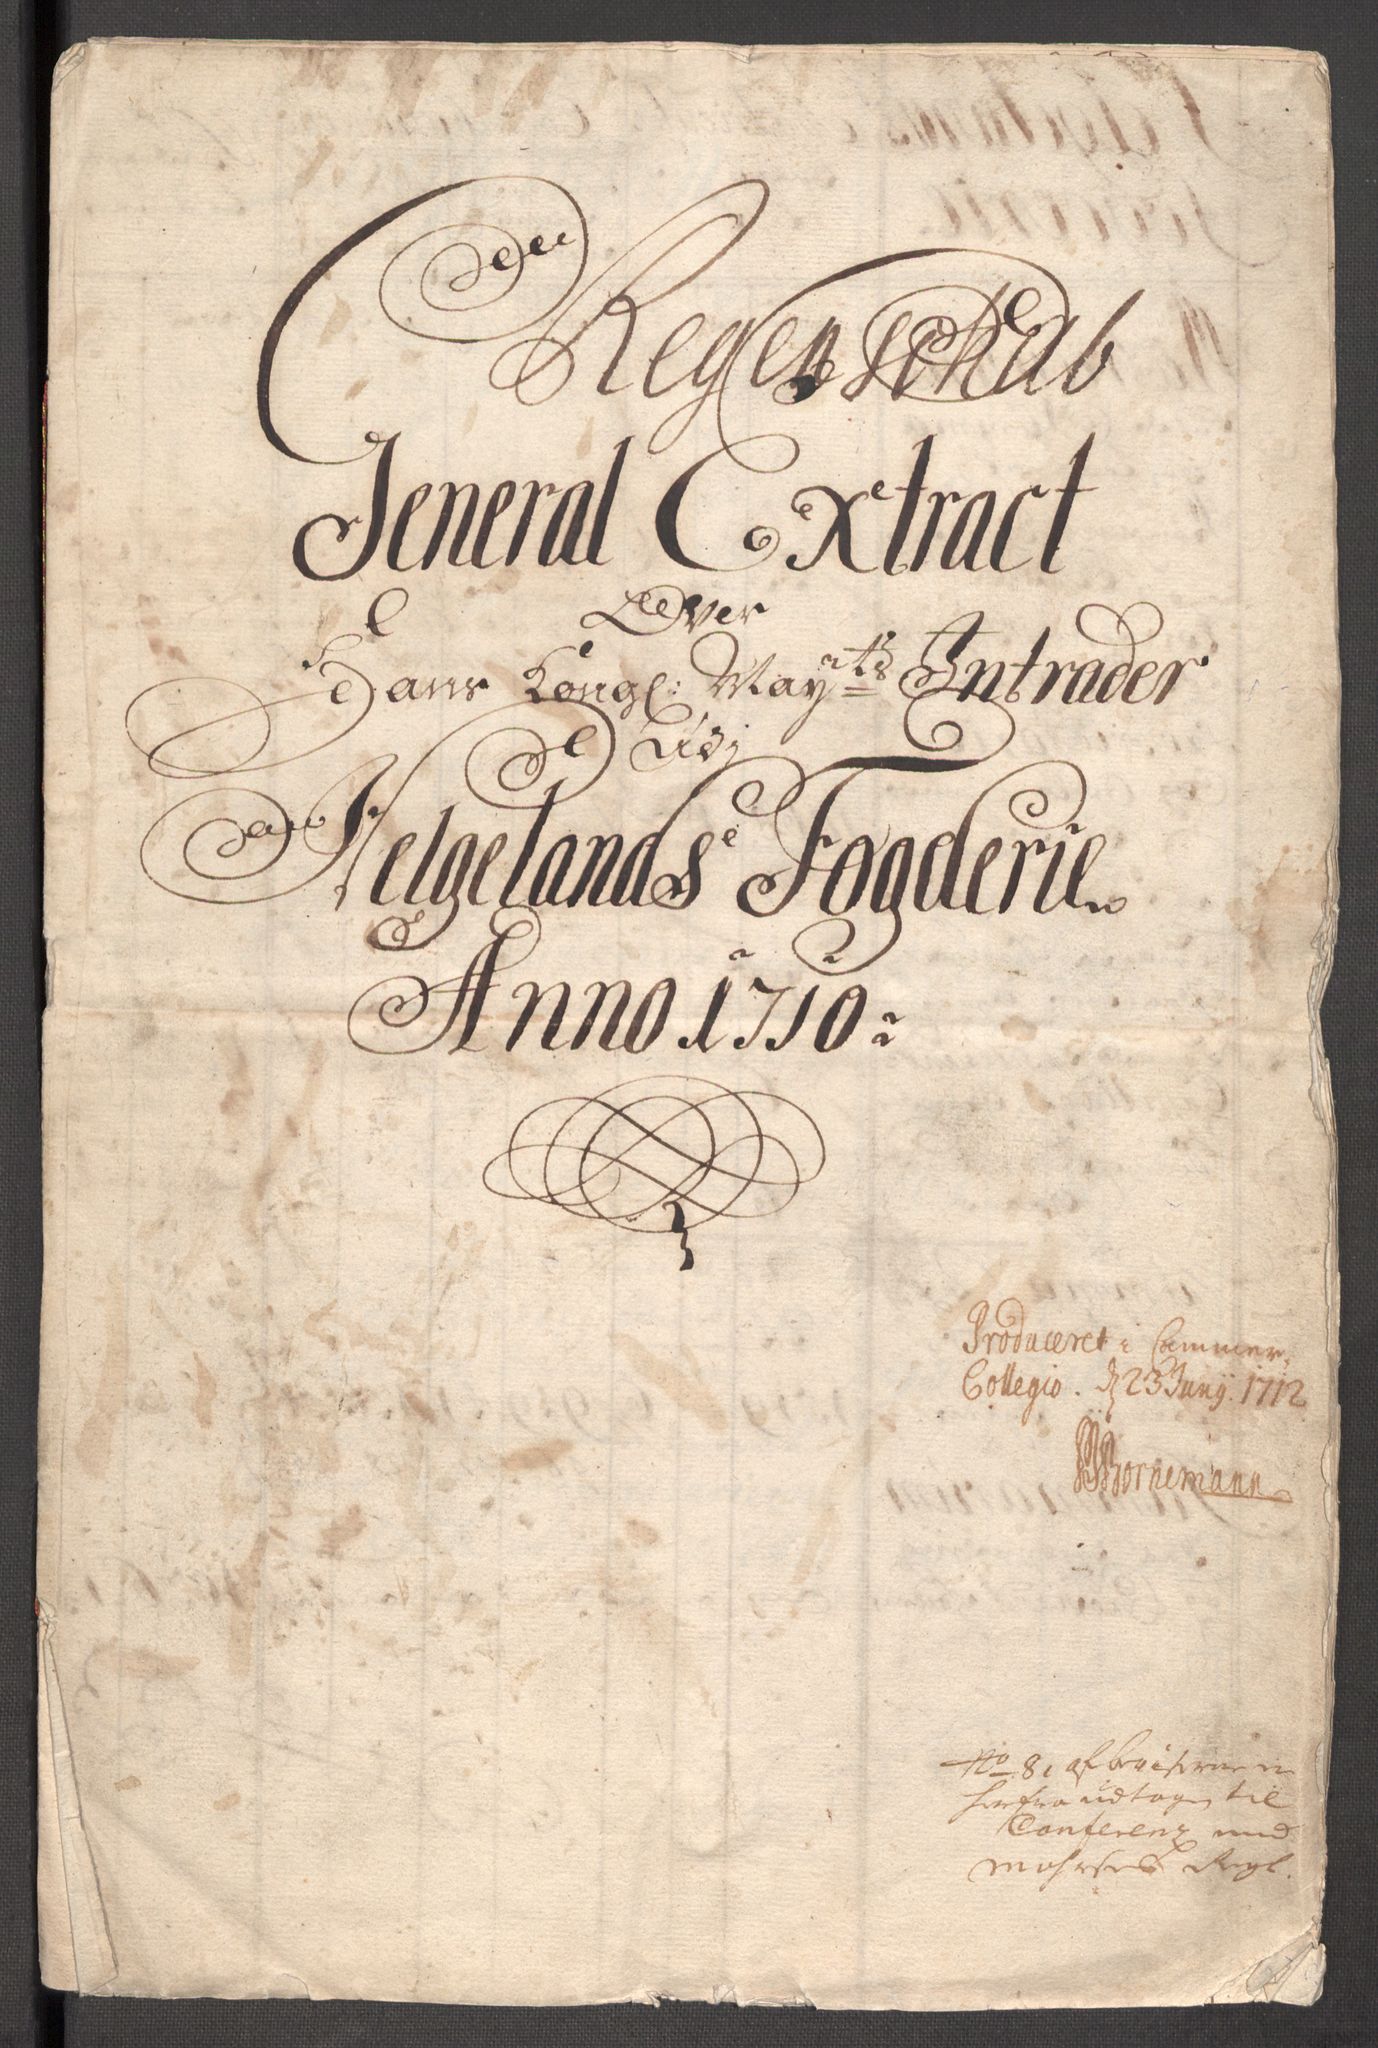 Regenschab
General Extract
Over
Hans Kongl: Mayts Intrader
Udj
Helgelands Fogderie
Anno 1710
Produceret i Cammer
Collegio. d 23 Junij. 1712
Bornemann
No 81 af
herfra udtagen til
Conferenz med
Regl.